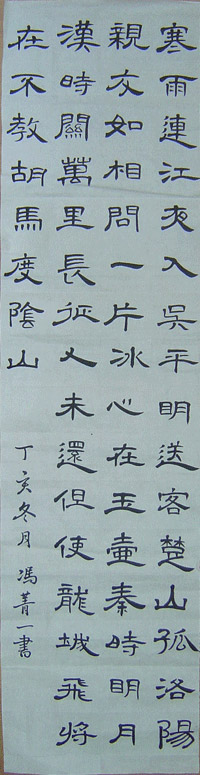 寒雨連江夜入吳平明送客楚山孤洛陽
親友如相問一片冰心在玉壺秦時明月
漢時關萬里長征人未還但使龍城飛將
在不教胡馬度陰山
丁亥冬月 馮菁一書